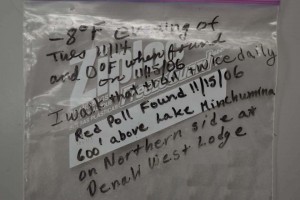 -8°F Evening of
Tues 11/14
and 0°F when found
on 11/15/06
I walk that trail twice daily
Red Poll Found 11/15/06
600' above Lake Minchumina
on Northern side at
Denali West Lodge